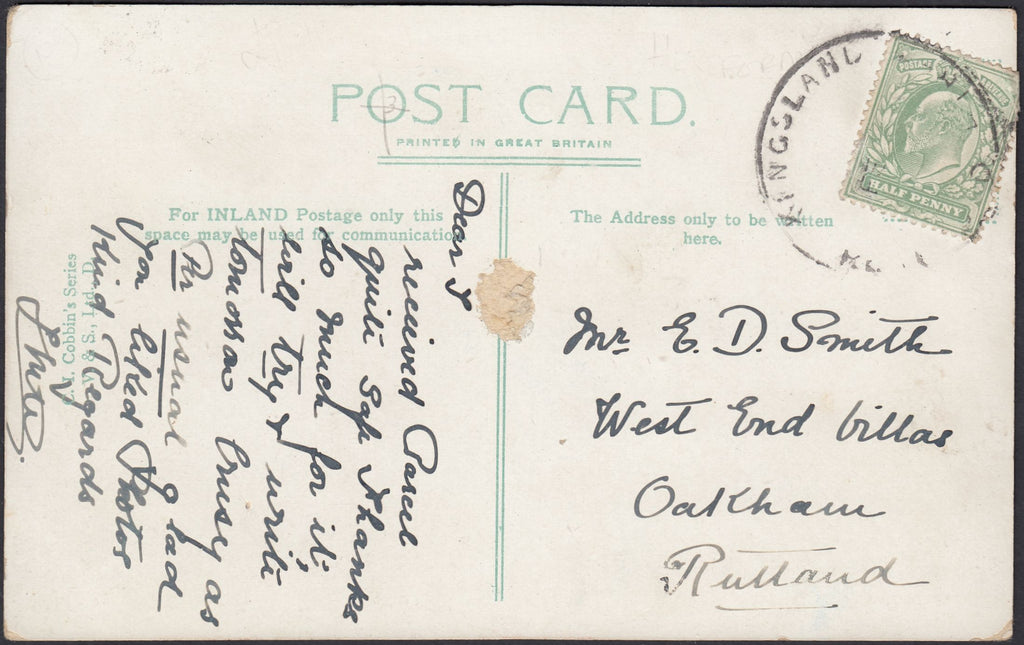 POST CARD.
PRINTED IN GREAT BRITAIN
For INLAND Postage only this
space may be used for communication
The Address only to be written
here.
KINGSLAND
POSTAGE
HALF PENNY
Dear S
received Parcel
quite safe Thanks
so much for it.
will try & write
tomorrow Busy as
Per usual glad
you liked Photos
Kind Regards
Cobbin's Series
& S., Ltd. D.
Mr E. D. Smith
West End Villas
Oakham
Rutland